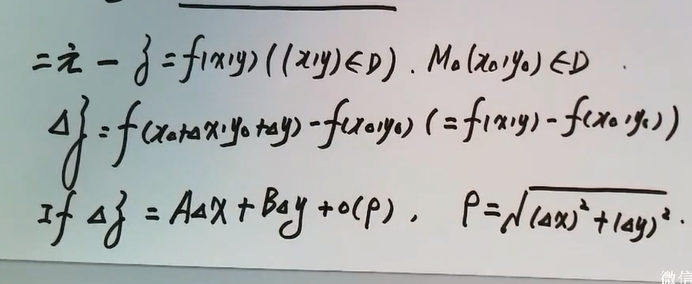 二元 — z = f(x,y) ((x,y)∈D). M₀(x₀,y₀)∈D.
Δz = f(x₀+Δx,y₀+Δy) - f(x₀,y₀) (= f(x,y) - f(x₀,y₀))
If Δz = AΔx + BΔy + o(ρ), ρ = √((Δx)² + (Δy)²).
微信